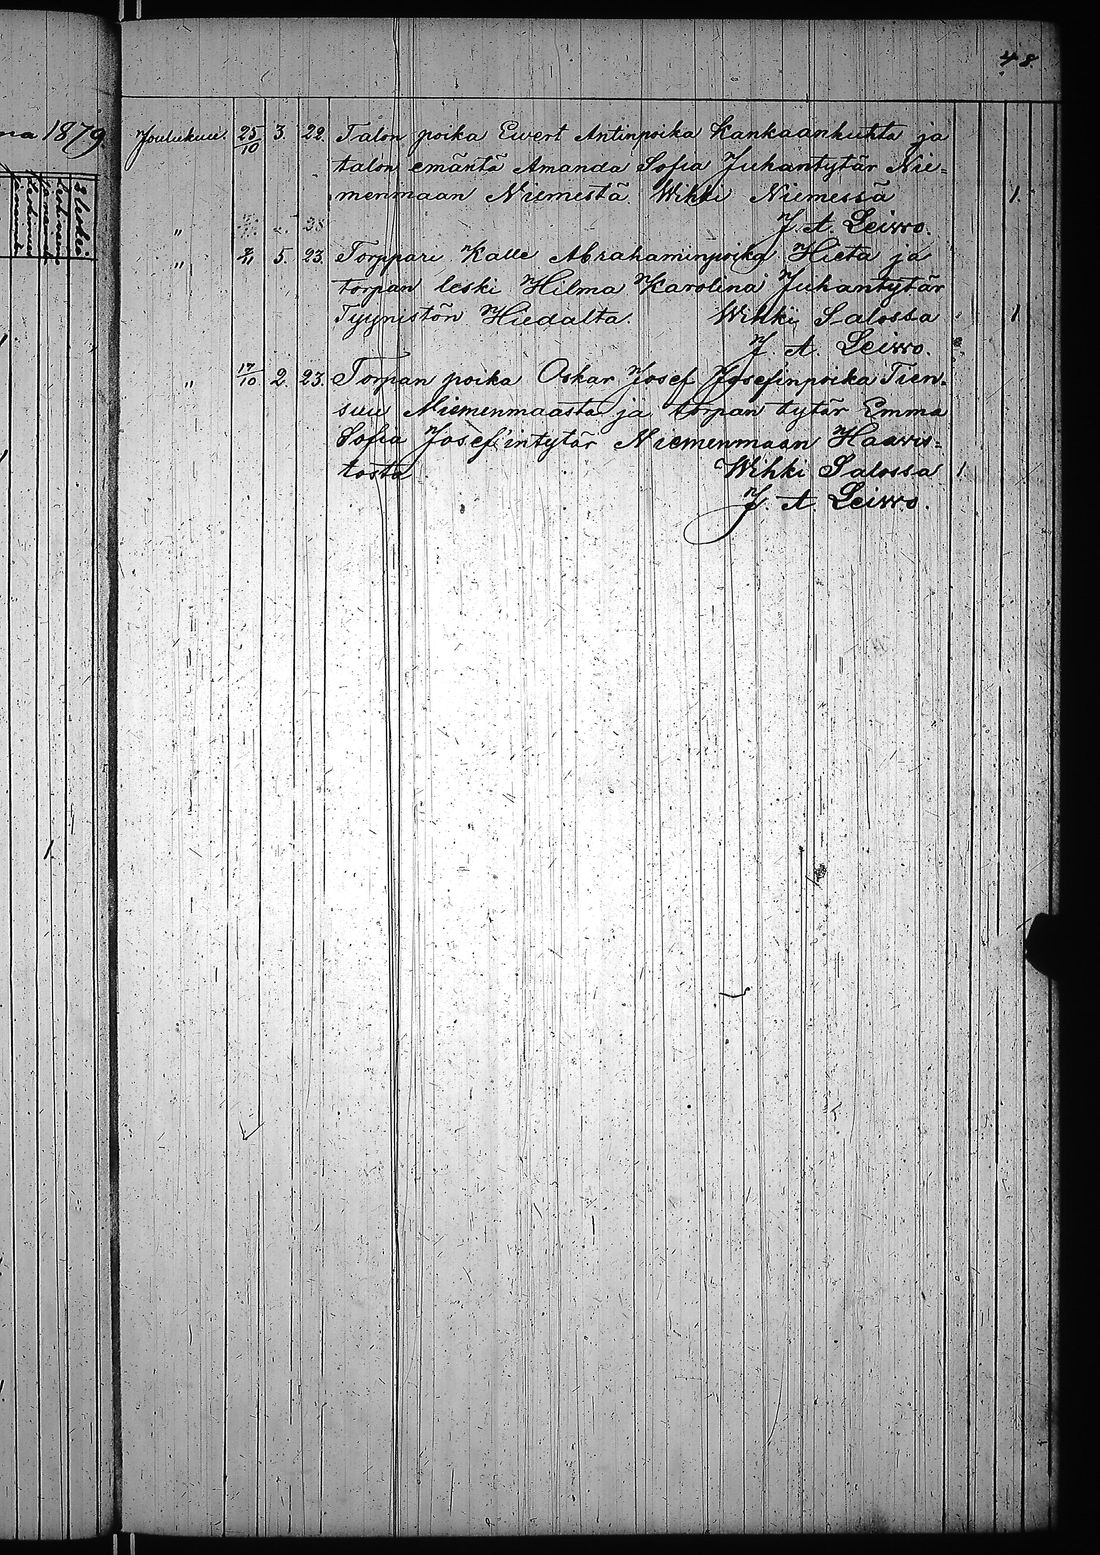 48.
1879
Joulukuu. 25/10 3. 22. Talon poika Ewert Antinpoika Kankaanhuhta ja
talon emäntä Amanda Sofia Juhantytär Nie-
menmaan Niemestä. Wihki Niemessä 1.
" J. A. Leiwo.
" 5. 23. Torppari Kalle Abrahaminpoika Hieta ja
torpan leski Hilma Karolina Juhantytär
Tyynistön Hiedalta. Wihki Salossa 1
J. A. Leiwo.
" 17/10 2. 23. Torpan poika Oskar Josef Josefinpoika Tien-
suu Niemenmaasta ja torpan tytär Emma
Sofia Josefintytär Niemenmaan Haawis-
tosta. Wihki Salossa 1.
J. A. Leiwo.
1.